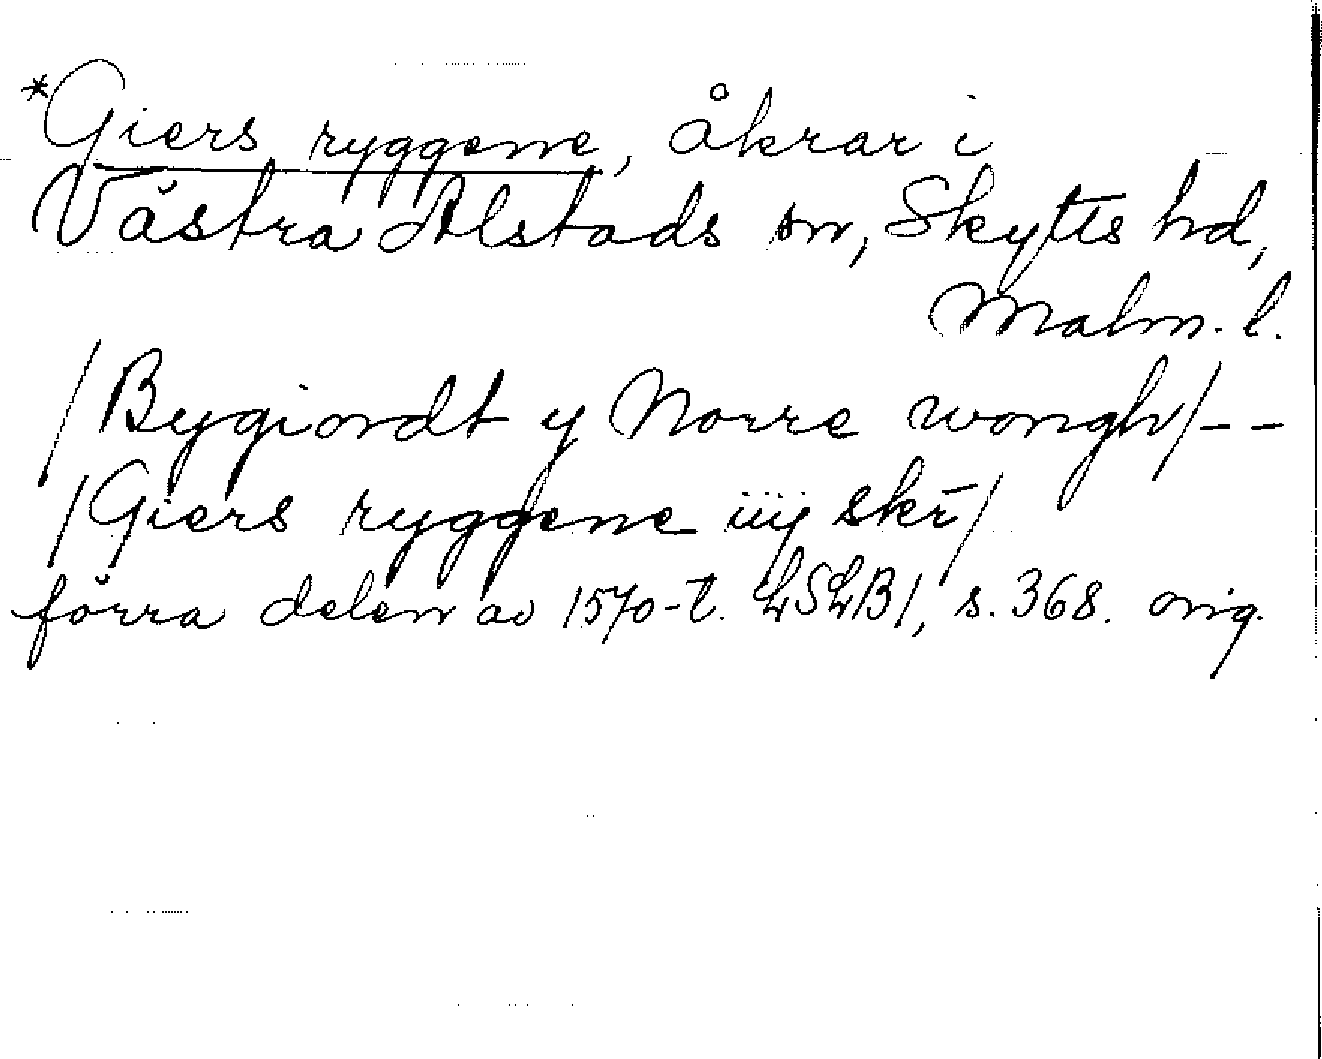 *Giers ryggene, åkrar i
Västra Alstads sn, Skytts hd,
Malm. l.
/Bygiordt y Norre wongh/--
/Giers ryggene iiij skr̄/
förra delen av 1570-t. LSLB1, s. 368. orig.